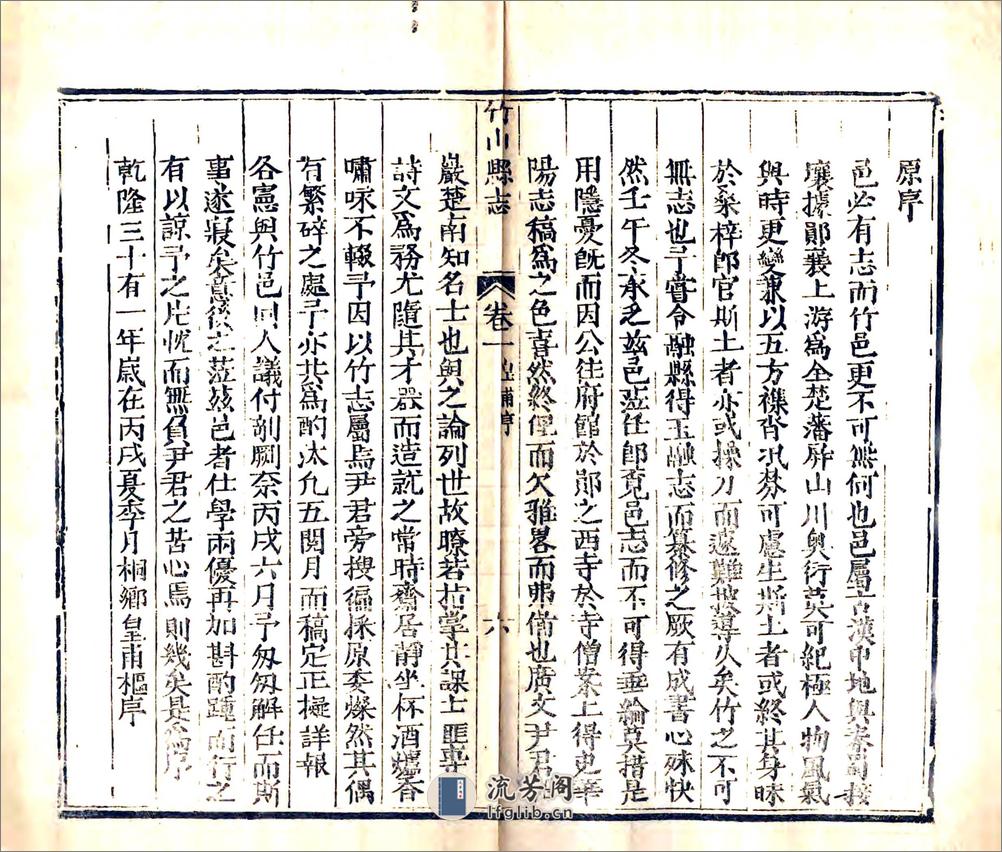 原序
邑必有志而竹邑更不可無何也邑屬古漢中地與秦蜀接
壤據鄖襄上游為全楚藩屏山川奧衍莫可紀極人物風氣
與時更變兼以五方襍沓汎棼可慮生斯土者或終其身昧
於桑梓卽官斯土者亦或操刀而遽難披導久矣竹之不可
無志也予嘗令融縣得玉融志而纂修之厥有成書心殊快
然壬午冬承乏茲邑蒞任卽覓邑志而不可得垂綸莫措是
用隱憂旣而因公往府館於鄖之西寺於寺僧案上得史華
陽志稿為之色喜然終俚而欠雅畧而弗備也廣文尹君
竹山縣志
卷一
皇甫序
六
巖楚南知名士也與之論列世故瞭若指掌其課士匪專
詩文爲務尤隨其才器而造就之常時齋居靜坐杯酒爐香
嘯咏不輟予因以竹志屬焉尹君旁搜徧採原委燦然其偶
有繁碎之處予亦共爲酌汰允五閱月而稿定正擬詳報
各憲與竹邑同人議付剞劂奈丙戌六月予匆匆解任而斯
事遂寢矣意後之蒞茲邑者仕學兩優再加斟酌踵而行之
有以諒予之片忱而無負尹君之苦心焉則幾矣是爲序
乾隆三十有一年歲在丙戌夏季月桐鄉皇甫樞序
流芳阁
lfglib.cn